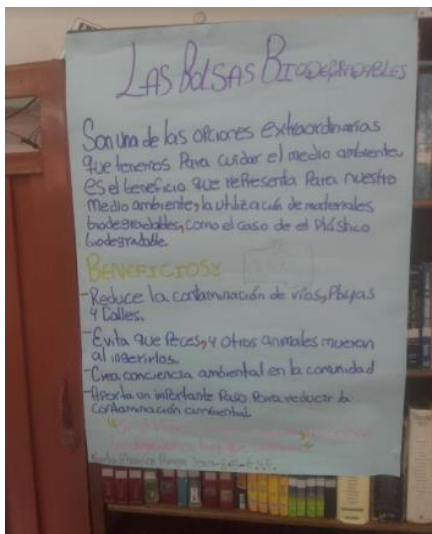 LAS BOLSAS BIODEGRADABLES
Son una de las opciones extraordinarias
que tenemos Para cuidar el medio ambiente,
es el beneficio que representa Para nuestro
medio ambiente, la utilización de materiales
biodegradables, como el caso de el Plástico
biodegradable.
BENEFICIOS:
-Reduce la contaminación de vías, Playas
y Calles.
-Evita que Peces, y otros animales mueran
al ingerirlos.
-Crea conciencia ambiental en la comunidad
-Aporta un importante Paso Para reducir la
contaminación ambiental